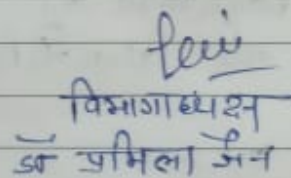 विभागाध्यक्ष
डॉ प्रमिला जैन